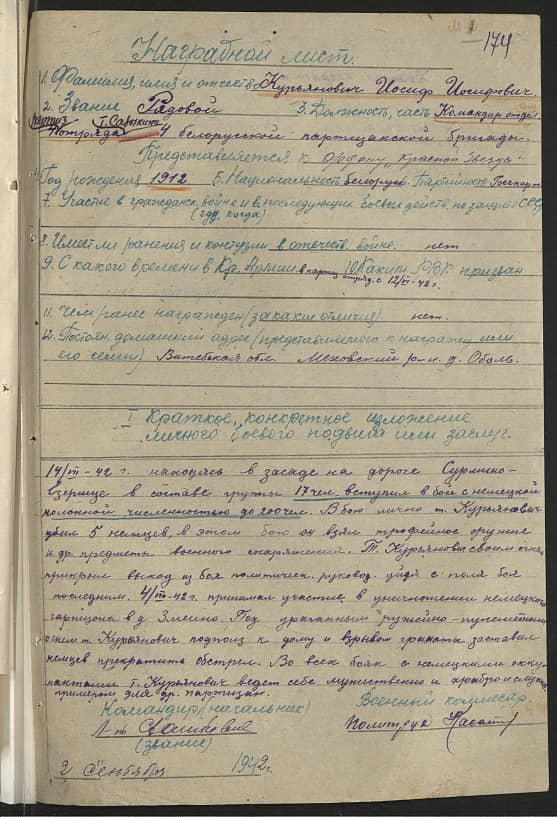 174
Наградной лист.
1. Фамилия, имя и отчество Курьянович Иосиф Иосифович.
2. Звание Рядовой 3. Должность, часть Командир отдел.
партиз. т. Савыкина
Потряда 4 белорусской партизанской бригады.
Представляется к Ордену "Красной Звезды"
4. Год рождения 1912 5. Национальность белорус. Партийность Беспарт.
7. Участие в гражданск. войне и в последующих боевых действ. по защите СССР
(где, когда)
8. Имеет ли ранения и контузии в отечеств. войне. нет
9. С какого времени в Кр. Армии в парт. отряд. с 12/III-42 г. 10. Каким РВК призван
11. Чем ранее награжден (за какие отличия) нет.
12. Постоян. домашний адрес (представляемого к награжд. или
его семьи) Витебская обл. Меховский р-н д. Оболь.
I Краткое, конкретное изложение
личного боевого подвига или заслуг.
14/III-42 г. находясь в засаде на дороге Сурмино-
Езерище в составе группы 17 чел. вступил в бой с немецкой
колонной численностью до 200 чел. В бою лично т. Курьянович
убил 5 немцев, в этом бою он взял трофейное оружие
и др. предметы военного снаряжения. Т. Курьянович своим огнем
прикрыл выход из боя политическ. руковод. уйдя с поля боя
последним. 4/III-42 г. принимал участие в уничтожении немецкого
гарнизона в д. Змеино. Под ураганным ружейно-пулеметным
огнем т. Курьянович подполз к дому и взрывом гранаты заставил
немцев прекратить обстрел. Во всех боях с немецкими окку-
пантами т. Курьянович ведет себя мужественно и храбро и служит
примером для др. партизан.
Командир (начальник) Военный комиссар.
Л-т Политрук
(звание)
2 Сентября 1942 г.